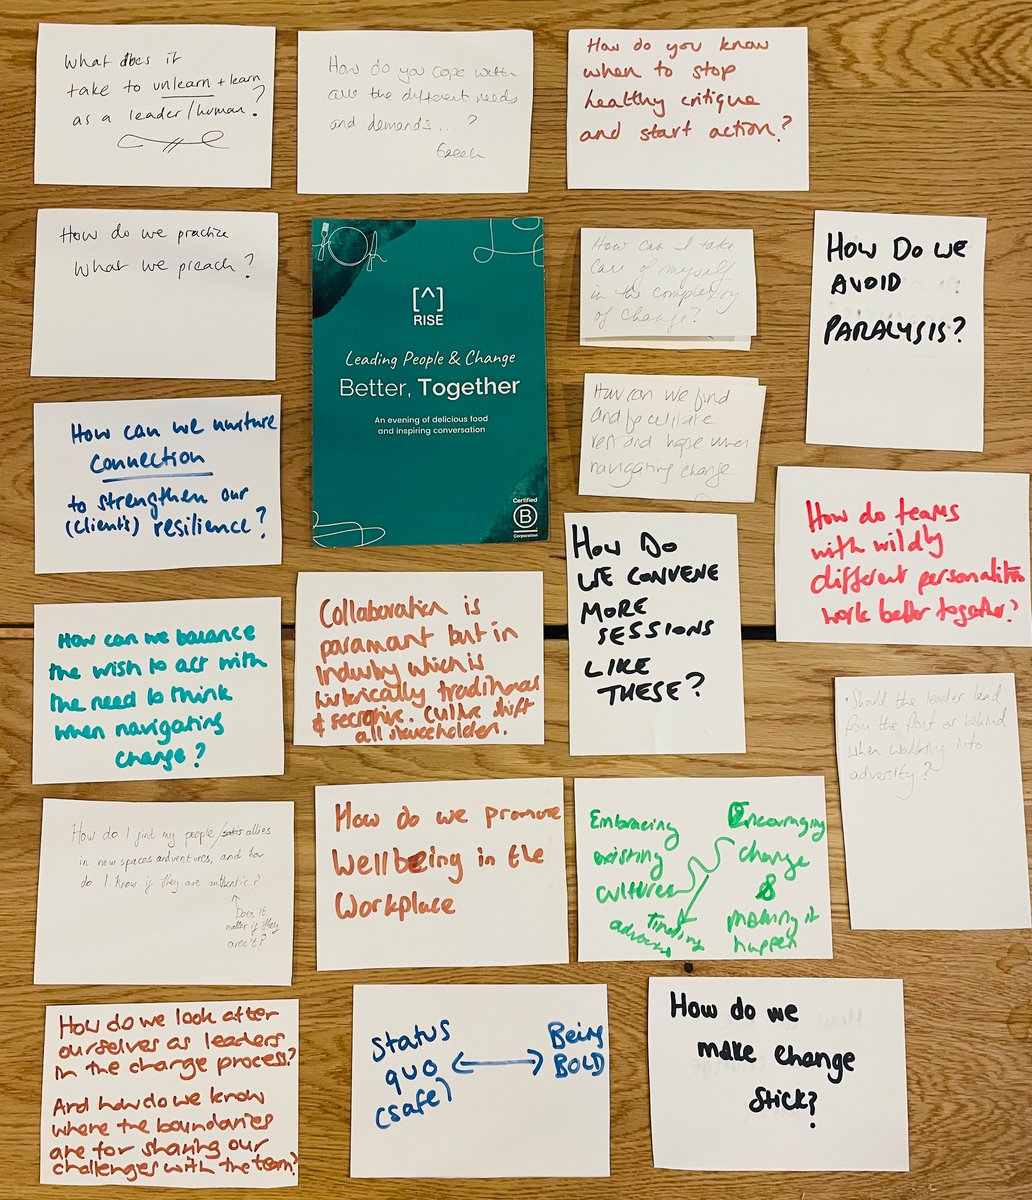 What does it
take to unlearn + learn
as a leader/human?
How do you cope with
all the different needs
and demands...?
Eeeek
How do you know
when to stop
healthy critique
and start action?
How do we practize
what we preach?
[^]
RISE
Leading People & Change
Better, Together
An evening of delicious food
and inspiring conversation
Certified
B
Corporation
How can I take
care of myself
in the complexity
of change?
HOW DO WE
AVOID
PARALYSIS?
How can we find
and facilitate
rest and hope when
navigating change
How can we nurture
connection
to strengthen our
(client's) resilience?
HOW DO
WE CONVENE
MORE
SESSIONS
LIKE
THESE?
How do teams
with wildly
different personalities
work better together?
How can we balance
the wish to act with
the need to think
when navigating
change?
Collaboration is
paramant but in
Industry which is
historically traditional
&. Culture shift
all stakeholders.
• Should the leader lead
from the front or behind
when walking into
adversity?
How do I find my people / allies
in new spaces adventures, and how
do I know if they are authentic?
↑
Does it
matter if they
aren't?
How do we promote
Wellbeing in the
Workplace
Embracing
existing
cultures
Encouraging
change
&
making it
happen
finding
How do we look after
ourselves as leaders
in the change process?
And how do we know
where the boundaries
are for sharing our
challenges with the team?
Status
quo
(safe)
Being
BOLD
How do we
make change
stick?